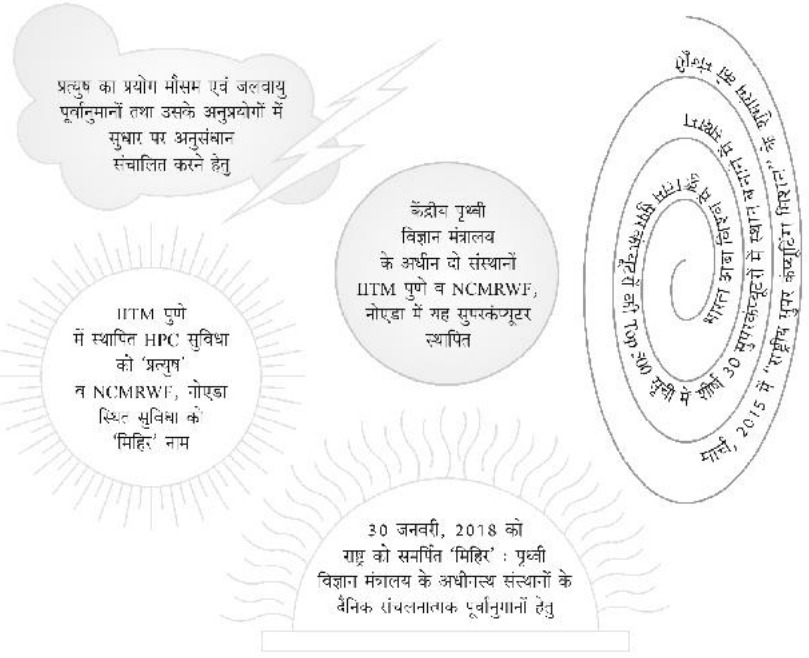 प्रत्युष का प्रयोग मौसम एवं जलवायु
पूर्वानुमानों तथा उसके अनुप्रयोगों में
सुधार पर अनुसंधान
संचालित करने हेतु
केंद्रीय पृथ्वी
विज्ञान मंत्रालय
के अधीन दो संस्थानों
IITM पुणे व NCMRWF,
नोएडा में यह सुपरकंप्यूटर
स्थापित
IITM पुणे
में स्थापित HPC सुविधा
को ‘प्रत्युष’
व NCMRWF, नोएडा
स्थित सुविधा को
‘मिहिर’ नाम
30 जनवरी, 2018 को
राष्ट्र को समर्पित ‘मिहिर’ : पृथ्वी
विज्ञान मंत्रालय के अधीनस्थ संस्थानों के
दैनिक संचलनात्मक पूर्वानुमानों हेतु
मार्च, 2015 में “राष्ट्रीय सुपर कंप्यूटिंग मिशन” के शुभारंभ को मंजूरी
भारत आया विश्व के सुपरकंप्यूटरों की Top 500 सूची में शीर्ष 30 सुपरकंप्यूटरों में स्थान बनाने में सक्षम